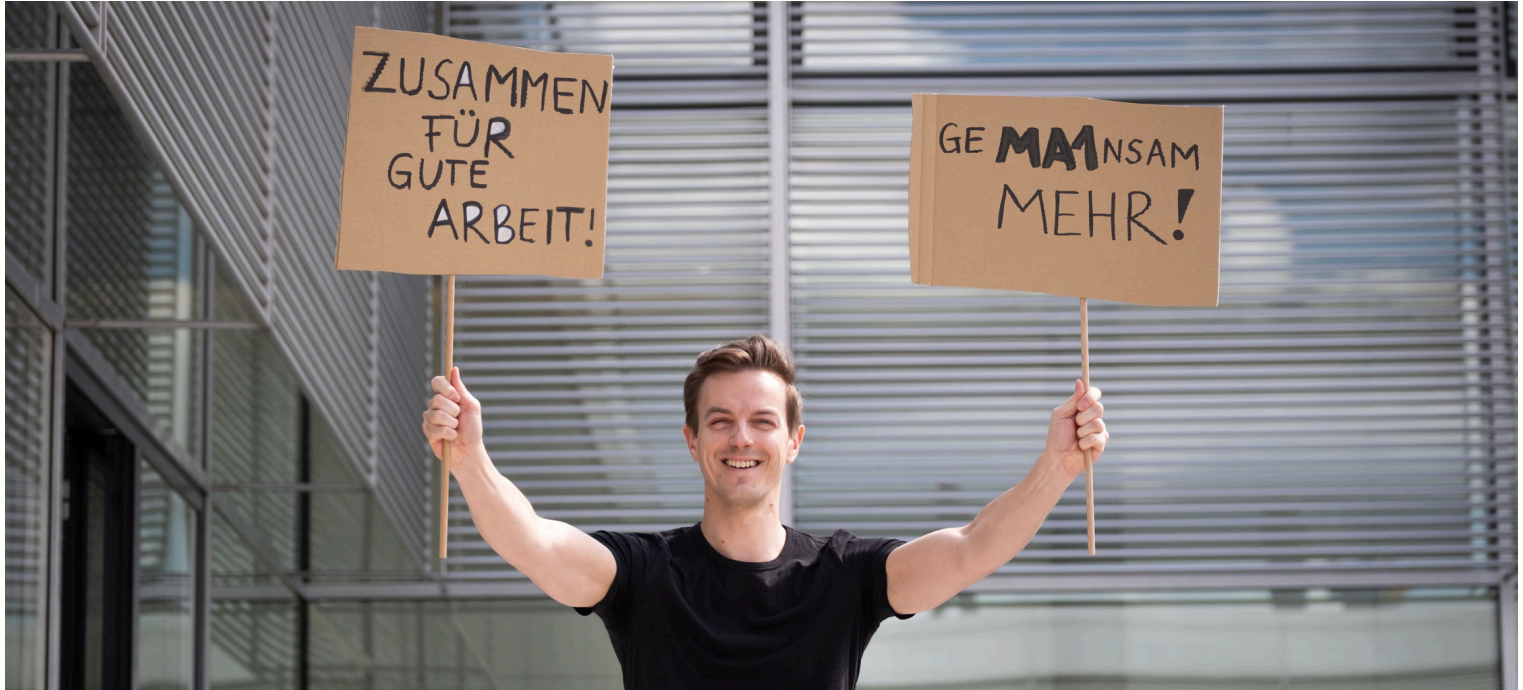 ZUSAMMEN
FÜR
GUTE
ARBEIT!
GE MAINSAM
MEHR!